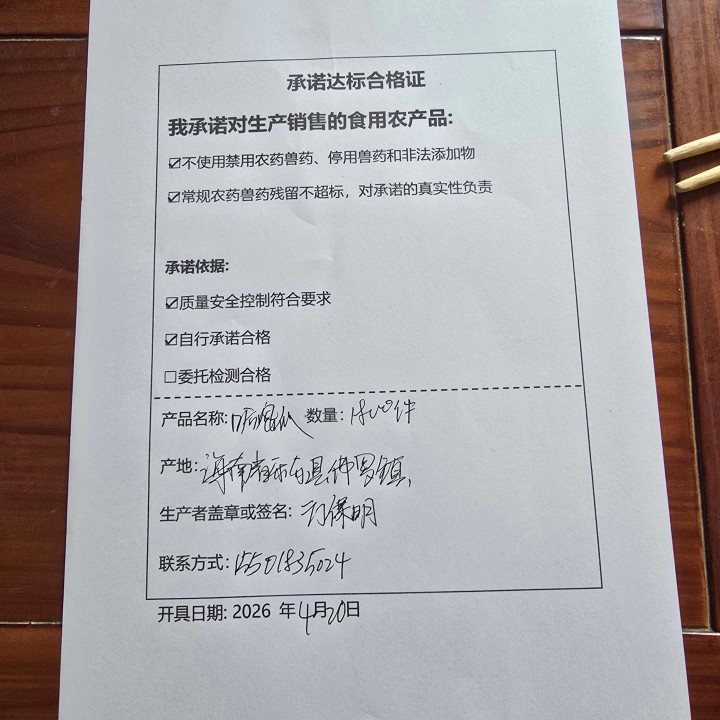 承诺达标合格证
我承诺对生产销售的食用农产品:
☑不使用禁用农药兽药、停用兽药和非法添加物
☑常规农药兽药残留不超标，对承诺的真实性负责
承诺依据:
☑质量安全控制符合要求
☑自行承诺合格
☐委托检测合格
产品名称: 数量: 件
产地: 海南省乐东县佛罗镇
生产者盖章或签名: 保明
联系方式:
开具日期: 2026 年4月20日